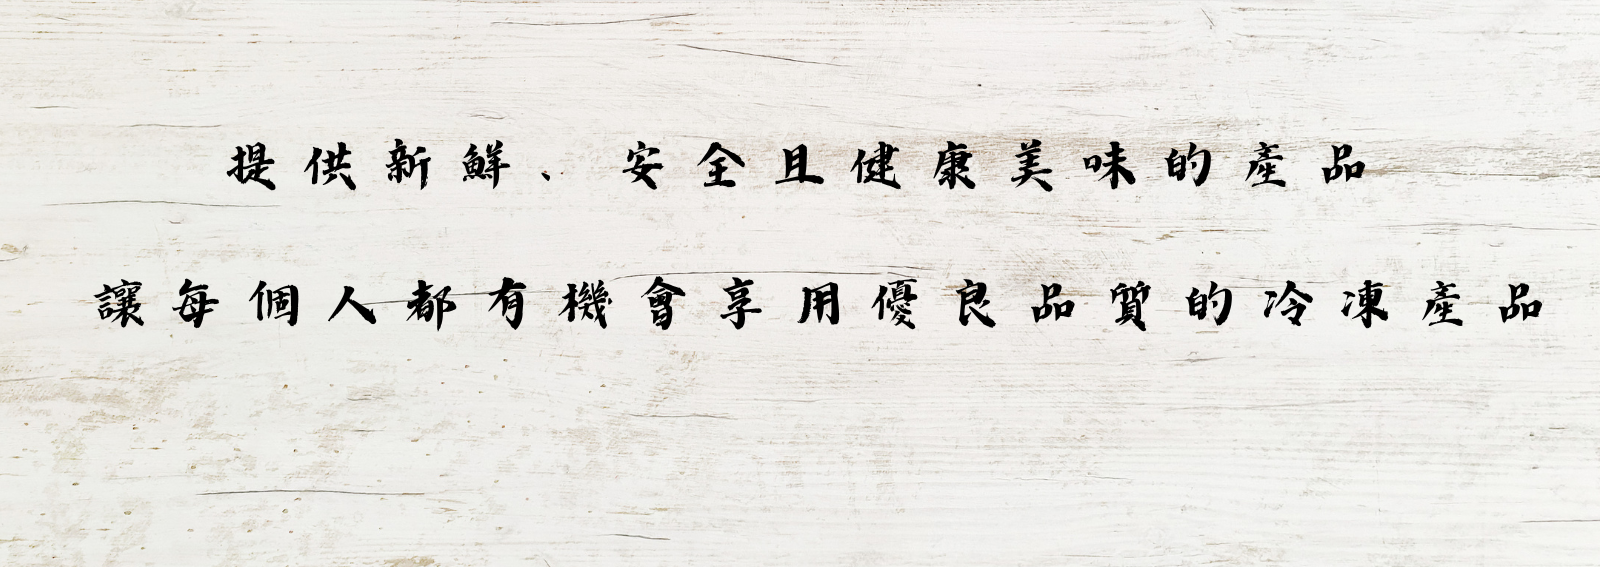 提供新鮮、安全且健康美味的產品
讓每個人都有機會享用優良品質的冷凍產品